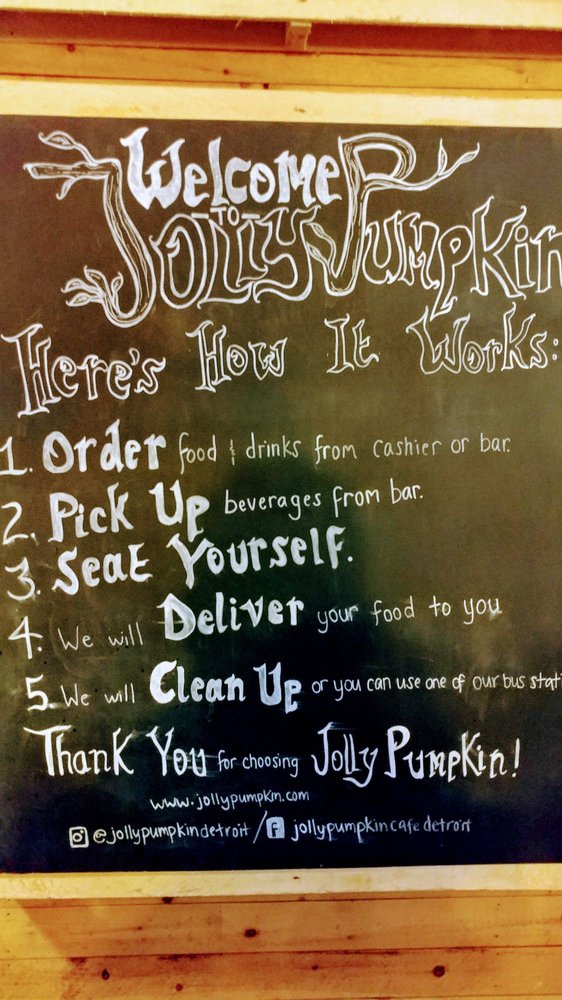 Welcome
TO
Jolly Pumpkin
Here's How It Works:
1. Order food & drinks from cashier or bar.
2. Pick Up beverages from bar.
3. Seat Yourself.
4. We will Deliver your food to you
5. We will Clean Up or you can use one of our bus stati
Thank You for choosing Jolly Pumpkin!
www.jollypumpkin.com
@jollypumpkindetroit / f jollypumpkincafedetroit